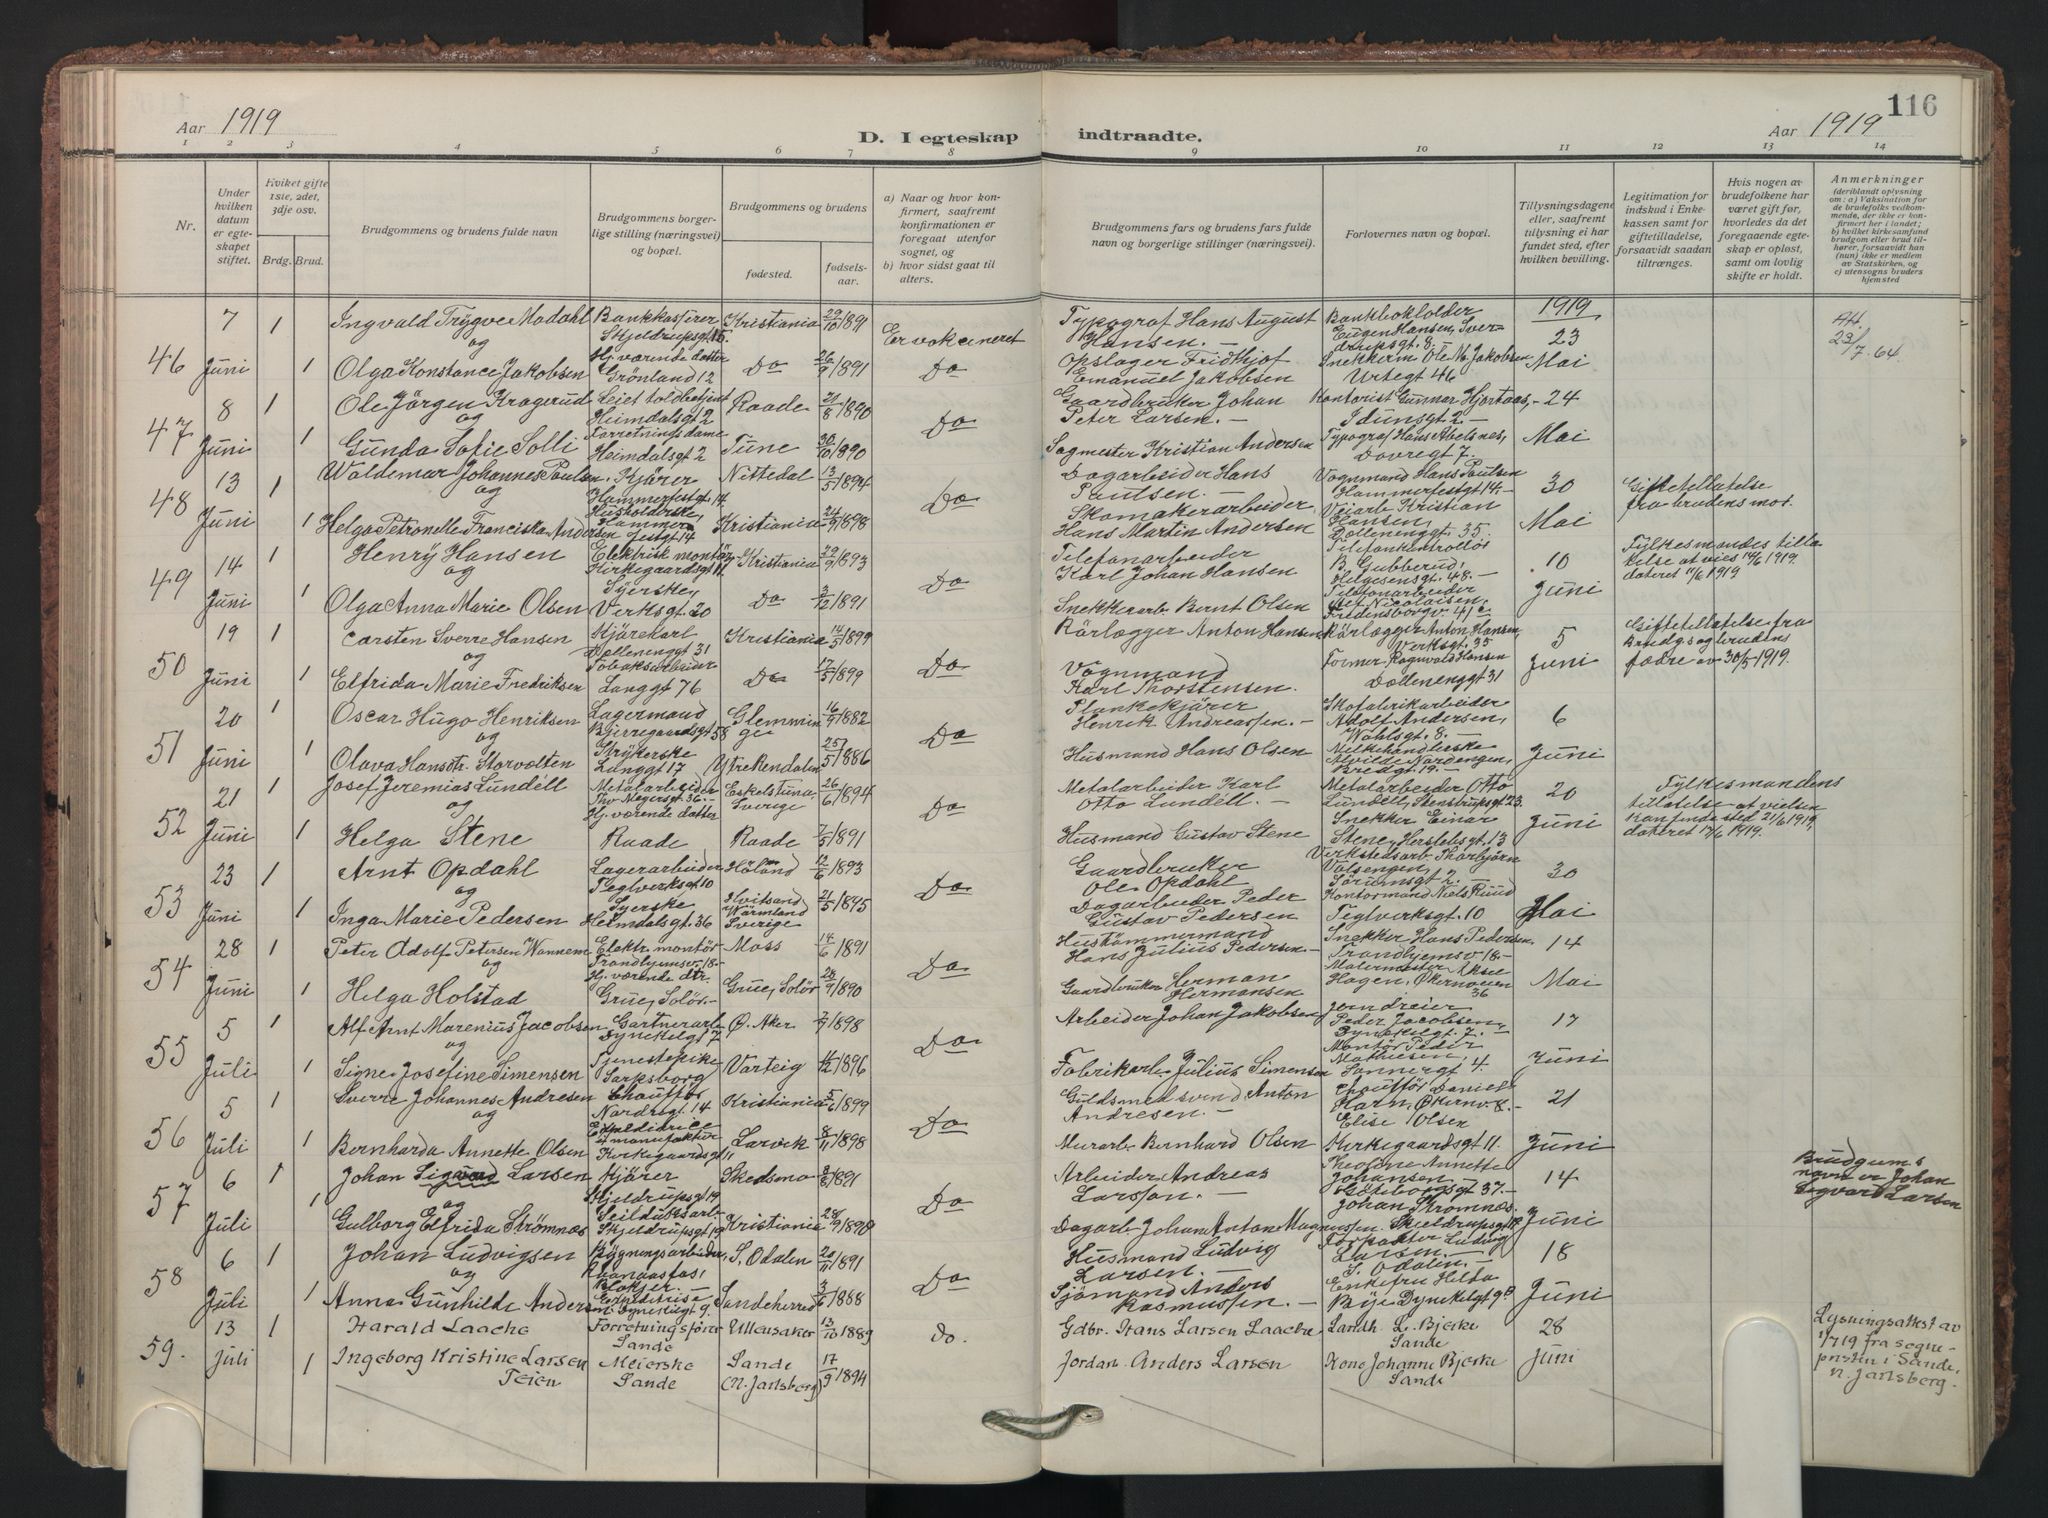 116
Aar 1919
D. I egteskap indtraadte.
Aar 1919
1 2 3 4 5 6 7 8 9 10 11 12 13 14
Nr.
Under hvilken datum er egteskapet stiftet.
Hvilket gifte 1ste, 2det, 3dje osv.
Brdg. Brud.
Brudgommens og brudens fulde navn
Brudgommens borgerlige stilling (næringsvei) og bopæl.
Brudgommens og brudens
fødested.
fødselsaar.
a) Naar og hvor konfirmert, saafremt konfirmationen er foregaat utenfor sognet, og
b) hvor sidst gaat til alters.
Brudgommens fars og brudens fars fulde navn og borgerlige stillinger (næringsvei).
Forlovernes navn og bopæl.
Tillysningsdagene eller, saafremt tillysning ei har fundet sted, efter hvilken bevilling.
Legitimation for indskud i Enkekassen samt for giftetilladelse, forsaavidt saadan tiltrænges.
Hvis nogen av brudefolkene har været gift før, hvorledes da det foregaaende egteskap er opløst, samt om lovlig skifte er holdt.
Anmerkninger (deriblandt oplysning om: a) Vaksination for de brudefolks vedkommende, der ikke er konfirmert her i landet; b) hvilket kirkesamfund brudgom eller brud tilhører, forsaavidt han (hun) ikke er medlem av Statskirken, og c) utensogns bruders hjemsted
46 7 Juni 1 Ingvald Trygve Modahl Bankkasserer Skjeldrupsgt 15. Kristiania 29/10 1891 Er vokcineret Typograf Hans August Hansen. Bankbokholder Eugen Hansen, Sverdrupsgt. 8. 1919 23 Mai
og
1 Olga Konstance Jakobsen Hj. værende datter Grönland 12 Do 26/9 1891 Do Opslager Fridthjof Emanuel Jakobsen Snekkerm Ole N. Jakobsen Urtegt 46
AH. 29/7. 64
47 8 Juni 1 Ole Jörgen Kragerud Leiet toldbetjent Heimdalsgt 2 Raade 21/8 1890 Do Gaardbruker Johan Peter Larsen. Kontorist Gunnar Hjortaas, Idunsgt 2. 24 Mai
og
1 Gunda Sofie Solli Forretningsdame Heimdalsgt 2 Tune 30/10 1890 Sagmester Kristian Andersen Typograf Hans Abelsnes, Dovregt 7.
48 13 Juni 1 Waldemar Johannes Paulsen Kjörer Hammerfestgt. 14. Nittedal 13/5 1894 Do Dagarbeider Hans Paulsen. Vognmand Hans Paulsen Hammerfestgt 14. 30 Mai Giftetillatelse fra brudens mor.
og
1 Helga Petronelle Franciska Andersen Husholderske, Hammerfestgt 14 Kristiania 24/9 1898 Skomakerarbeider Hans Martin Andersen Veiarb Kristian Hansen, Dællenenggt. 35.
49 14 Juni 1 Henry Hansen Elektrisk montör Kirkegaardsgt 11 Kristiania 29/9 1893 Do Telefonarbeider Karl Johan Hansen Telefonkontrollör B. Gubberud, Helgesensgt. 48. 10 Juni Fylkesmandes tillatelse at vies 14/6 1919. dateret 11/6 1919
og
1 Olga Anna Marie Olsen Syerske, Verksgt. 20 Do 3/12 1891 Snekkerarb. Bernt Olsen Telefonarbeider Alf Nicolaisen, Fredensborgv. 41c
50 19 Juni 1 Carsten Sverre Hansen Kjörekarl Dællenenggt 31 Kristiania 14/5 1899 Do Rörlægger Anton Hansen Rörlægger Anton Hansen, Verksgt. 35 5 Juni Giftetillatelse fra Brudgs og brudens fædre av 30/5 1919.
og
1 Elfrida Marie Fredriksen Tobaksarbeider Langgt 76 Do 17/5 1899 Vognmand Karl Thorstensen. Former Ragnvald Hansen Dællenenggt 31
51 20 Juni 1 Oscar Hugo Henriksen Lagermand Bjerregaardsgt 58 Glemminge 16/9 1882 Do Plankekjörer Henrik Andreassen. Skofabrikarbeider Adolf Andersen, Wahlsgt. 8. 6 Juni
og
1 Olava Hansdtr. Storvolten Strykerske Langgt 17 Ytre Rendalen 25/5 1886 Husmand Hans Olsen Melkehandlerske Alvilde Nordengen, Bredgt. 19.
52 21 Juni 1 Josef Jeremias Lundéll Metalarbeider Thv Meyersgt 36. Eskelstuna, Sverige 26/6 1894 Do Metalarbeider Karl Otto Lundéll. Metalarbeider Otto Lundéll, Stenstrupsgt 23. 20 Juni Fylkesmandens tillatelse at vielsen kan finde sted 21/6 1919, dateret 17/6 1919.
og
1 Helga Stene Hj. værende datter Raade Raade 7/5 1891 Husmand Gustav Stene Snekker Einar Stene, Herslebsgt. 13
53 23 Juni 1 Arnt Opdahl Lagerarbeider Teglverksgt 10 Höland 12/6 1893 Do Gaardbruker Ole Opdahl Verkstedsarb. Thorbjörn Volsengen, Sörumsgt 2. 30 Mai
og
1 Inga Marie Pedersen Syerske Heimdalsgt. 36 Hvitsand Wärmland Sverige 21/5 1895 Dagarbeider Peder Gustav Pedersen Kontormand Niels Ruud Teglverksgt. 10
54 28 Juni 1 Peter Adolf Petersen Wannem Elektr. montör Trondhjemsv. 18. Moss 14/6 1891 Do Hustömmermand Hans Julius Pedersen. Snekker Hans Pedersen. Trondhjemsv 18. 14 Mai
og
1 Helga Holstad Hj. værende dtr. Grue, Solör. Grue, Solör 28/9 1890 Gaardbruker Herman Hermansen Malermester Aksel Hagen, Økernveien 36
55 5 Juli 1 Alf Arnt Marenius Jacobsen Gartnerarb. Dynekilgt 7 Ø. Aker 7/9 1898 Do Arbeider Johan Jakobsen Jerndreier Peder Jacobsen, Dynekilgt. 7. 17 Juni
og
1 Signe Josefine Simensen Tjenestepike Sarpsborg Varteig 4/12 1896 Fabrikarb. Julius Simensen Montör Peder Mathiesen, Sannergt 4.
56 5 Juli 1 Sverre Johannes Andresen Chaufför Nordregt. 14 Kristiania 5/6 1899 Do Guldsmedsvend Anton Andresen. Chaufför Daniel Harn, Økernv. 8. 21 Juni
og
1 Bernharda Annette Olsen Expeditrice i manufaktur Kirkegaardsgt 11 Larvik 8/11 1898 Murarb. Bernhard Olsen Elise Olsen Kirkegaardsgt 11.
57 6 Juli 1 Johan Sigvard Larsen Kjörer Skjeldrupsgt 19 Skedsmo 3/6 1891 Do Arbeider Andreas Larsson. Theoline Annette Johansen, Göteborgsgt 37. 14 Juni Brudgums navn er Johan Sigvard Larsen
og
1 Gulborg Elfrida Strömnæs Seilduksarb. Skjeldrupsgt 19 Kristiania 28/9 1898 Dagarb. Johan Antone Magnussen. Johan Strömnæs. Skjeldrupsgt 19.
58 6 Juli 1 Johan Ludvigsen Bygningsarbeider, Raanaasfos, Blakjer. S. Odalen 20/11 1891 Do Husmand Ludvig Larsen. Forpakter Ludvig Larsen. S. Odalen. 18 Juni
og
1 Anna Gunhilde Andersen Expeditrise Dynekilgt 9. Sandeherred 3/6 1888 Sjömand Anders Rasmussen. Enkefru Hilda Bye Dynekilgt 9
59. 13 Juli 1 Harald Laache Forretningsförer Sande Ullensaker 13/10 1889 do. Gdbr. Hans Larsen Laache Landh. L. Bjerke Sande 28 Juni Lysningsattest av 1/7 19 fra sognepresten i Sande, N. Jarlsberg.
1 Ingeborg Kristine Larsen Teien Meierske Sande Sande (N. Jarlsberg) 17/9 1894 Jordbr. Anders Larsen Kone Johanne Bjerke Sande